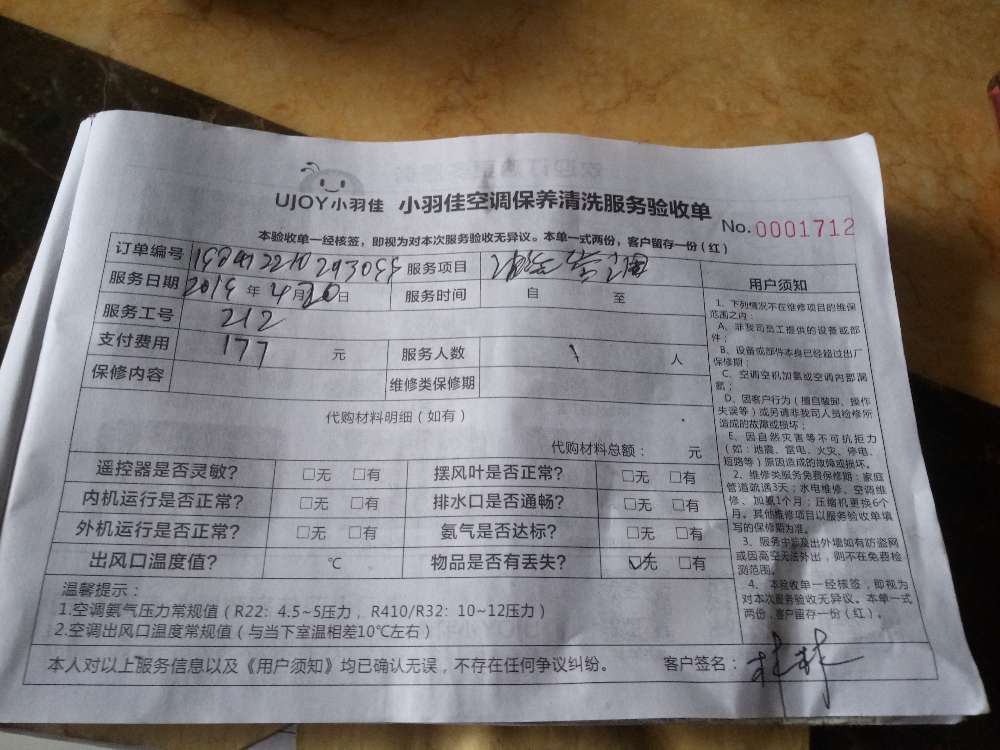 UJOY小羽佳 小羽佳空调保养清洗服务验收单
No. 0001712
本验收单一经核签，即视为对本次服务验收无异议。本单一式两份，客户留存一份（红）
订单编号 服务项目
服务日期 2019 年 4 月 20 日 服务时间 自 至
服务工号 212
支付费用 177 元 服务人数 1 人
保修内容 维修类保修期
代购材料明细（如有）
代购材料总额： 元
遥控器是否灵敏？ □无 □有 摆风叶是否正常？ □无 □有
内机运行是否正常？ □无 □有 排水口是否通畅？ □无 □有
外机运行是否正常？ □无 □有 氨气是否达标？ □无 □有
出风口温度值？ ℃ 物品是否有丢失？ ☑无 □有
温馨提示：
1.空调氨气压力常规值（R22：4.5~5压力，R410/R32：10~12压力）
2.空调出风口温度常规值（与当下室温相差10℃左右）
本人对以上服务信息以及《用户须知》均已确认无误，不存在任何争议纠纷。 客户签名：
用户须知
1、下列情况不在维修项目的维保
范围之内：
A、非我司员工提供的设备或部
件；
B、设备或部件本身已经超过出厂
保修期；
C、空调空机加氨或空调内部漏
氨；
D、因客户行为（擅自装卸、操作
失误等）或另请非我司人员检修所
造成的故障或损坏；
E、因自然灾害等不可抗拒力
（如：地震、雷电、火灾、停电、
短路等）原因造成的故障或损坏。
2、维修类服务免费保修期：家庭
管道疏通3天；水电维修、空调维
修、加氨1个月；压缩机更换6个
月。其他维修项目以服务验收单填
写的保修期为准。
3、服务中涉及出外墙如有防盗网
或因高空无法外出，则不在免费检
测范围。
4、本验收单一经核签，即视为
对本次服务验收无异议。本单一式
两份，客户留存一份（红）。